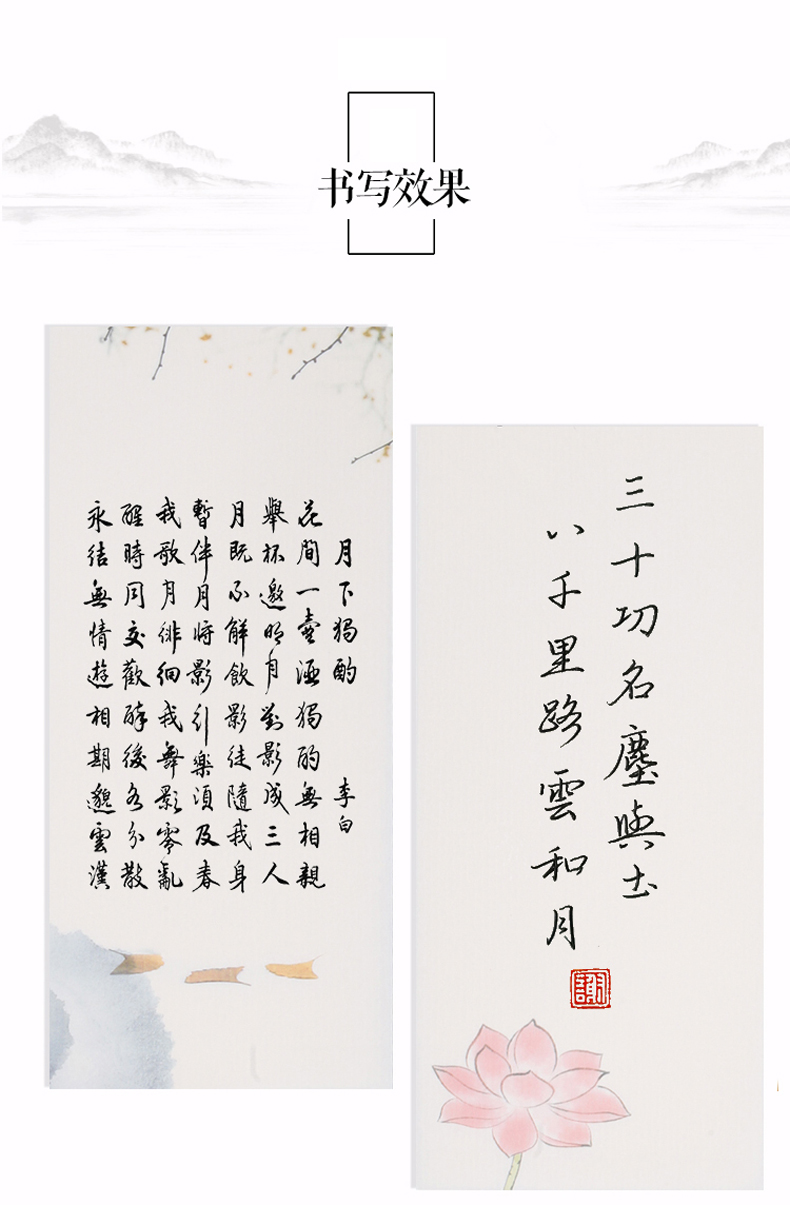 书写效果
月下獨酌 李白
花間一壺酒獨酌無相親
舉杯邀明月對影成三人
月既不解飲影徒隨我身
暫伴月將影引樂須及春
我歌月徘徊我舞影零亂
醒時同交歡醉後各分散
永結無情遊相期邈雲漢
三十功名塵與土
八千里路雲和月
謝